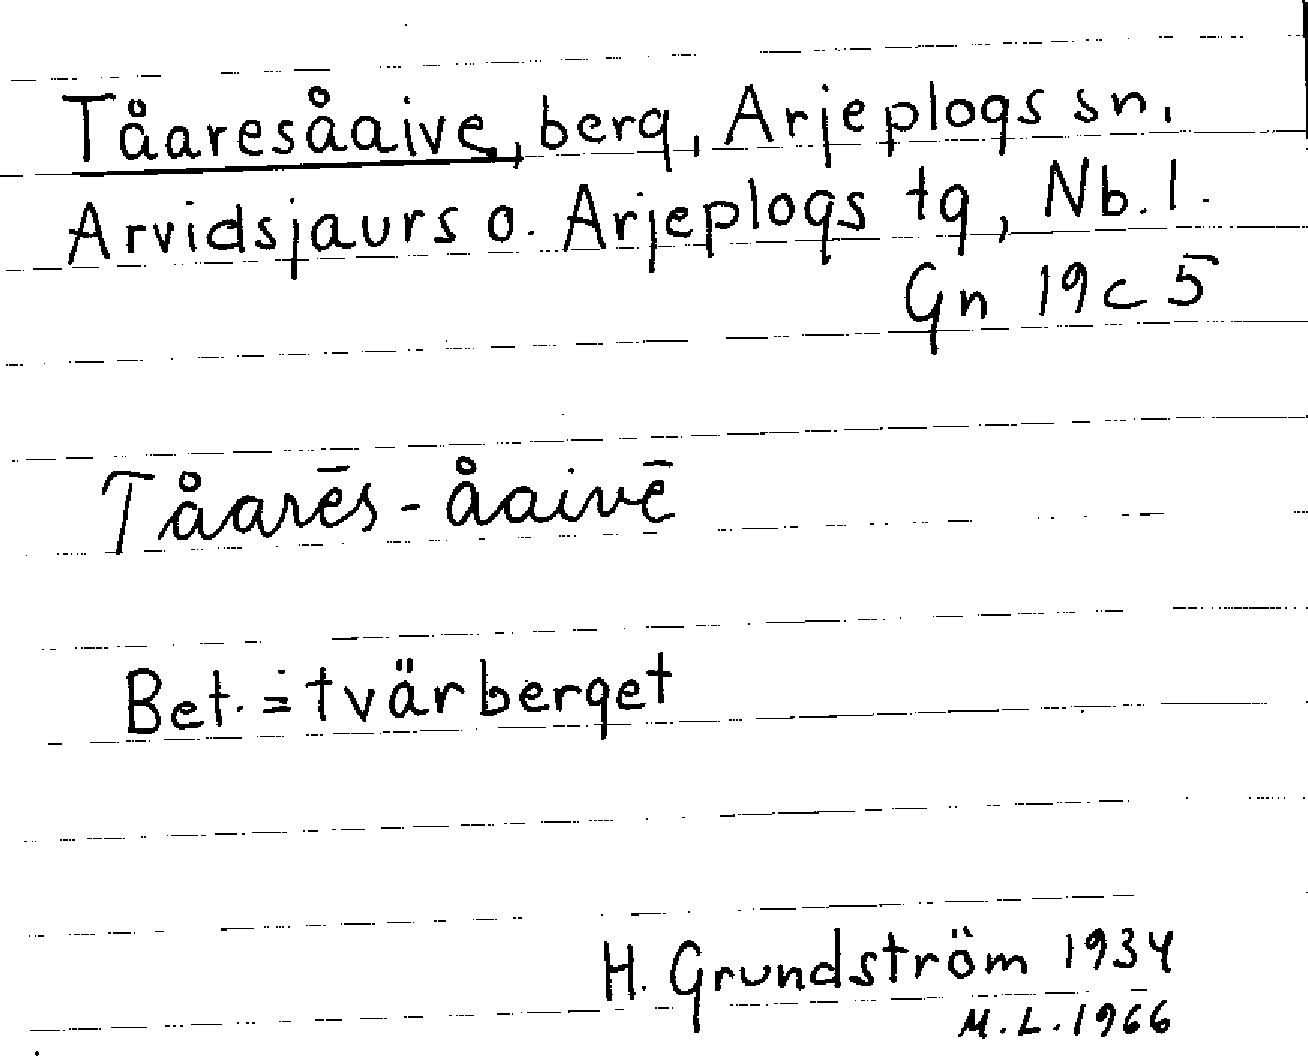 Tåaresåaive, berg, Arjeplogs sn.
Arvidsjaurs o. Arjeplogs tg, Nb.l.
Gn 19c5
Tåarēs-åaivē
Bet. = tvärberget
H. Grundström 1934
M.L. 1966